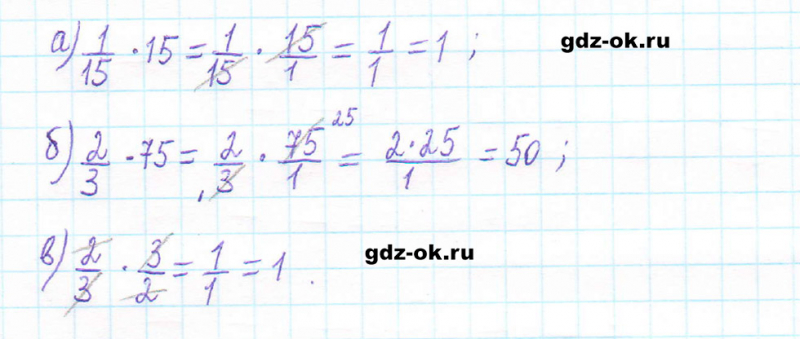 а) 1/15 · 15 = 1/15 · 15/1 = 1/1 = 1 ; gdz-ok.ru
б) 2/3 · 75 = 2/3 · 75/1 25 = 2·25/1 = 50 ;
в) 2/3 · 3/2 = 1/1 = 1 . gdz-ok.ru